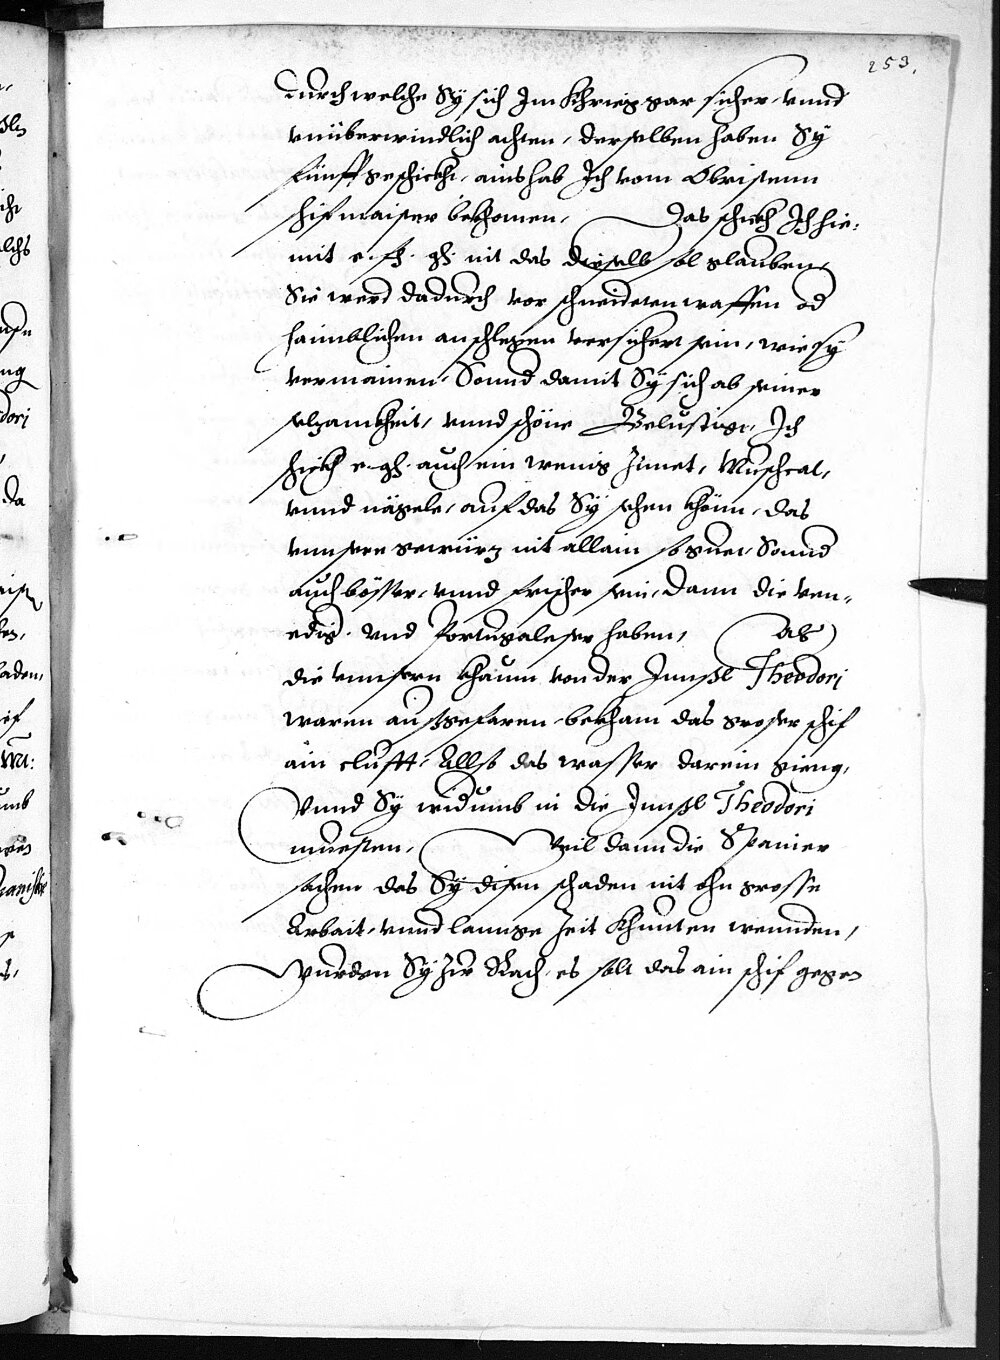 253.
durch welche Sÿ sich Im Khrieg gar sicher, vnnd
vnüberwindlich achten, derselben haben Sÿ
fünff geschickht, ains hab Ich vom Obristenn
schifmaister bekhomen, Das schickh Ich hie-
mit e. fh. gh. nit das dieselb sol glauben,
Sie werd dadurch vor schneideten waffen od
haimblichen anschlegen versichert sein, wie sÿ
vermainen, Sonnd damit Sÿ sich ab seiner
selzamkheit, vnnd schöne Belustige, Ich
schickh e. gh. auch ein wenig Zimet, Muschcat,
vnnd nägele, auf das Sÿ sehen khönn, das
vnnsere gewürz nit allain so guet, Sonnd
auch bösser, vnnd frischer sein, dann die ven-
edig. vnd Portugaleser haben, Als
die vnnsern khaum von der Innsl Theodori
waren außgefaren, bekham das groser schif
ain clufft, Allso das wasser darein gieng,
Vnnd Sÿ widumb in die Innsl Theodori
muesten, Weil dann die Spanier
sachen das Sÿ disen schaden nit ohn grosse
Arbait, vnnd lannge Zeit khunten wennden,
Wurden Sÿ Zw Rach, es solt das ain schif gegen